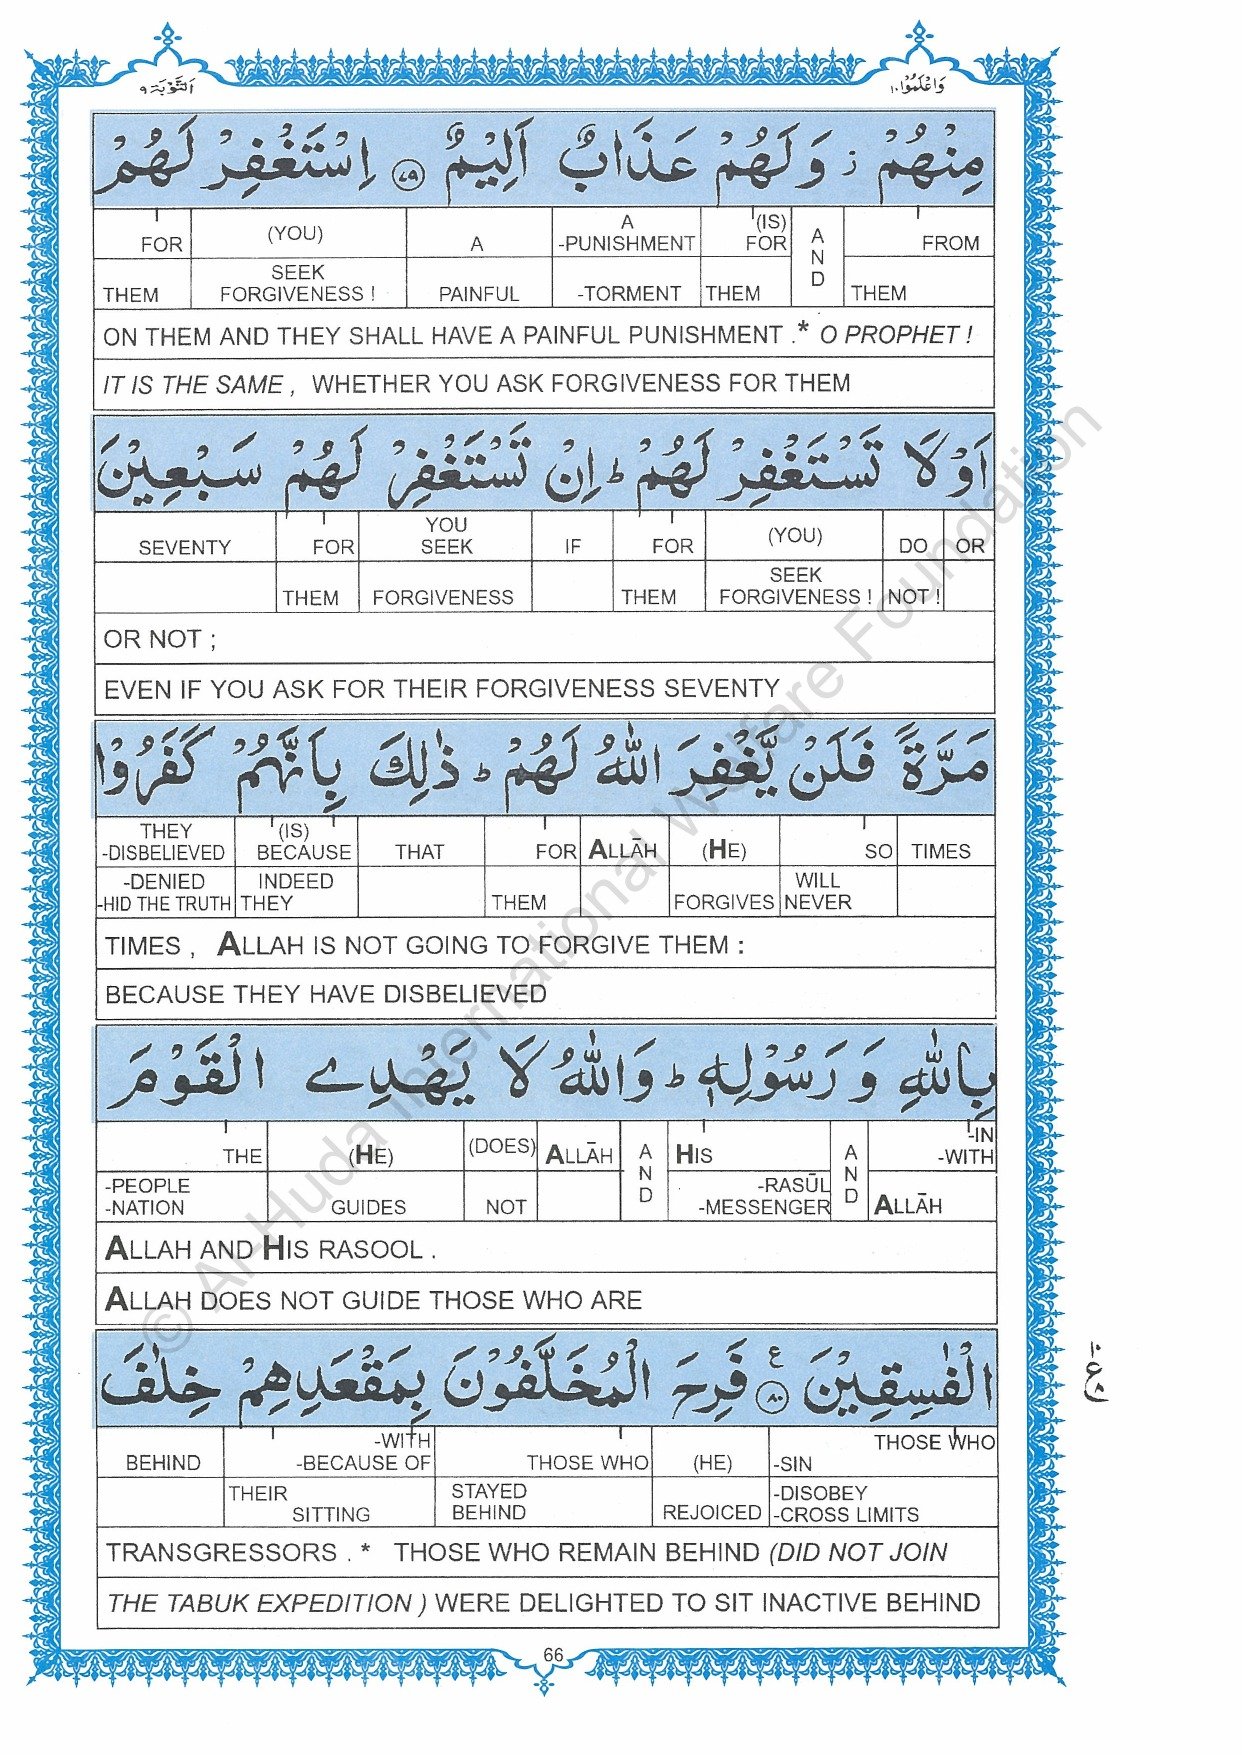 التَّوْبَة ٩ وَاعْلَمُوْا ١٠
مِنْهُمْ ز وَلَهُمْ عَذَابٌ اَلِيْمٌ ٧٩ اِسْتَغْفِرْ لَهُمْ
FOR (YOU) A A -PUNISHMENT (IS) FOR AND FROM
THEM SEEK FORGIVENESS ! PAINFUL -TORMENT THEM THEM
ON THEM AND THEY SHALL HAVE A PAINFUL PUNISHMENT .* O PROPHET !
IT IS THE SAME , WHETHER YOU ASK FORGIVENESS FOR THEM
اَوْ لَا تَسْتَغْفِرْ لَهُمْ ط اِنْ تَسْتَغْفِرْ لَهُمْ سَبْعِيْنَ
SEVENTY FOR YOU SEEK IF FOR (YOU) DO OR
THEM FORGIVENESS THEM SEEK FORGIVENESS ! NOT !
OR NOT ;
EVEN IF YOU ASK FOR THEIR FORGIVENESS SEVENTY
مَرَّةً فَلَنْ يَّغْفِرَ اللّٰهُ لَهُمْ ط ذٰلِكَ بِاَنَّهُمْ كَفَرُوْا
THEY -DISBELIEVED (IS) BECAUSE THAT FOR ALLĀH (HE) SO TIMES
-DENIED -HID THE TRUTH INDEED THEY THEM FORGIVES WILL NEVER
TIMES , ALLAH IS NOT GOING TO FORGIVE THEM :
BECAUSE THEY HAVE DISBELIEVED
بِاللّٰهِ وَ رَسُوْلِهٖ ط وَاللّٰهُ لَا يَهْدِے الْقَوْمَ
THE (HE) (DOES) ALLĀH AND HIS AND -IN -WITH
-PEOPLE -NATION GUIDES NOT -RASŪL -MESSENGER ALLĀH
ALLAH AND HIS RASOOL .
ALLAH DOES NOT GUIDE THOSE WHO ARE
الْفٰسِقِيْنَ ٨٠ ع فَرِحَ الْمُخَلَّفُوْنَ بِمَقْعَدِهِمْ خِلٰفَ
١٠ ع ٨
BEHIND -WITH -BECAUSE OF THOSE WHO (HE) THOSE WHO -SIN
THEIR SITTING STAYED BEHIND REJOICED -DISOBEY -CROSS LIMITS
TRANSGRESSORS . * THOSE WHO REMAIN BEHIND (DID NOT JOIN
THE TABUK EXPEDITION ) WERE DELIGHTED TO SIT INACTIVE BEHIND
66
© Al-Huda International Welfare Foundation